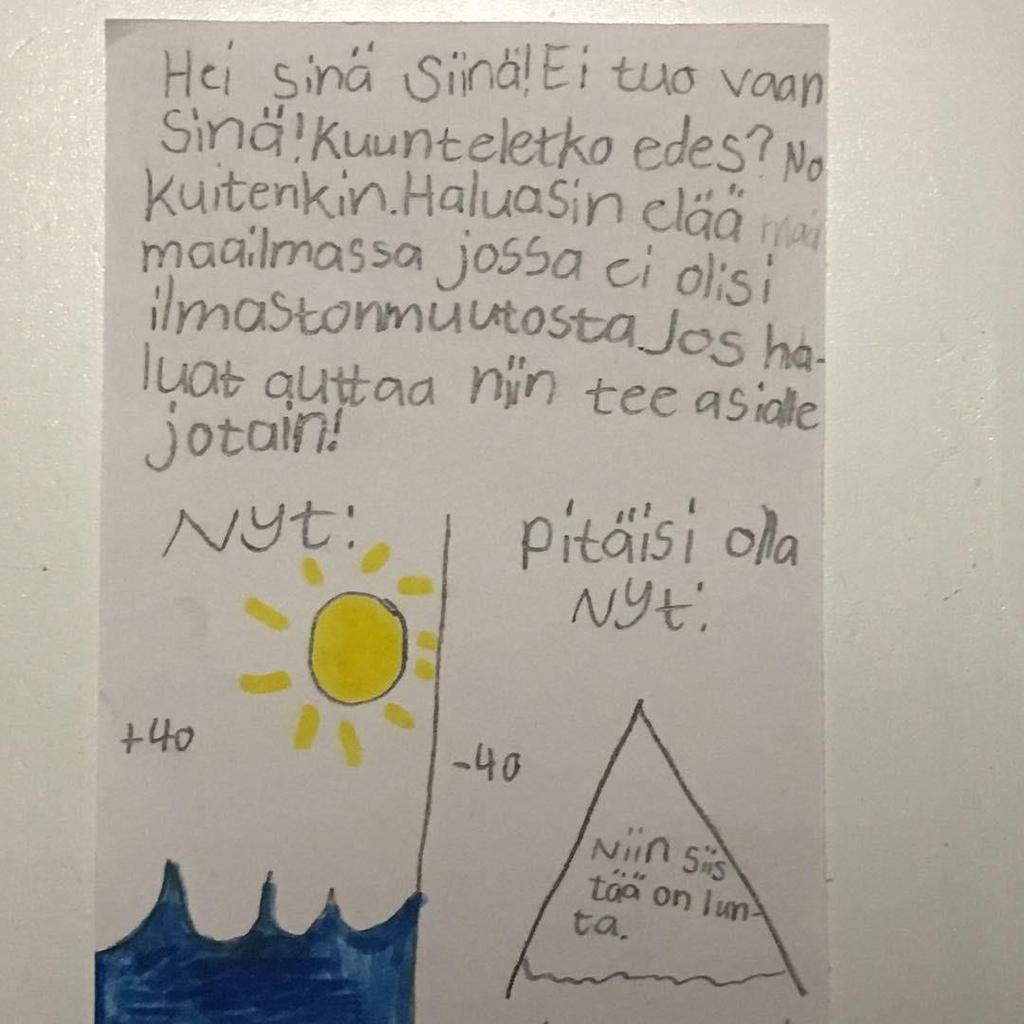 Hei sinä siinä! Ei tuo vaan
sinä! Kuunteletko edes? No
kuitenkin. Haluasin elää maa
maailmassa jossa ei olisi
ilmastonmuutosta. Jos ha-
luat auttaa niin tee asialle
jotain!
Nyt:
pitäisi olla
Nyt:
+40
-40
Niin siis
tää on lun-
ta.